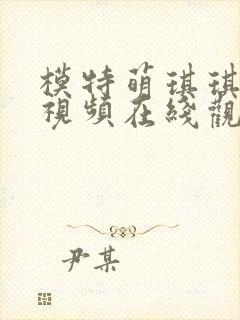 模特萌琪琪
視頻在綫觀
尹某